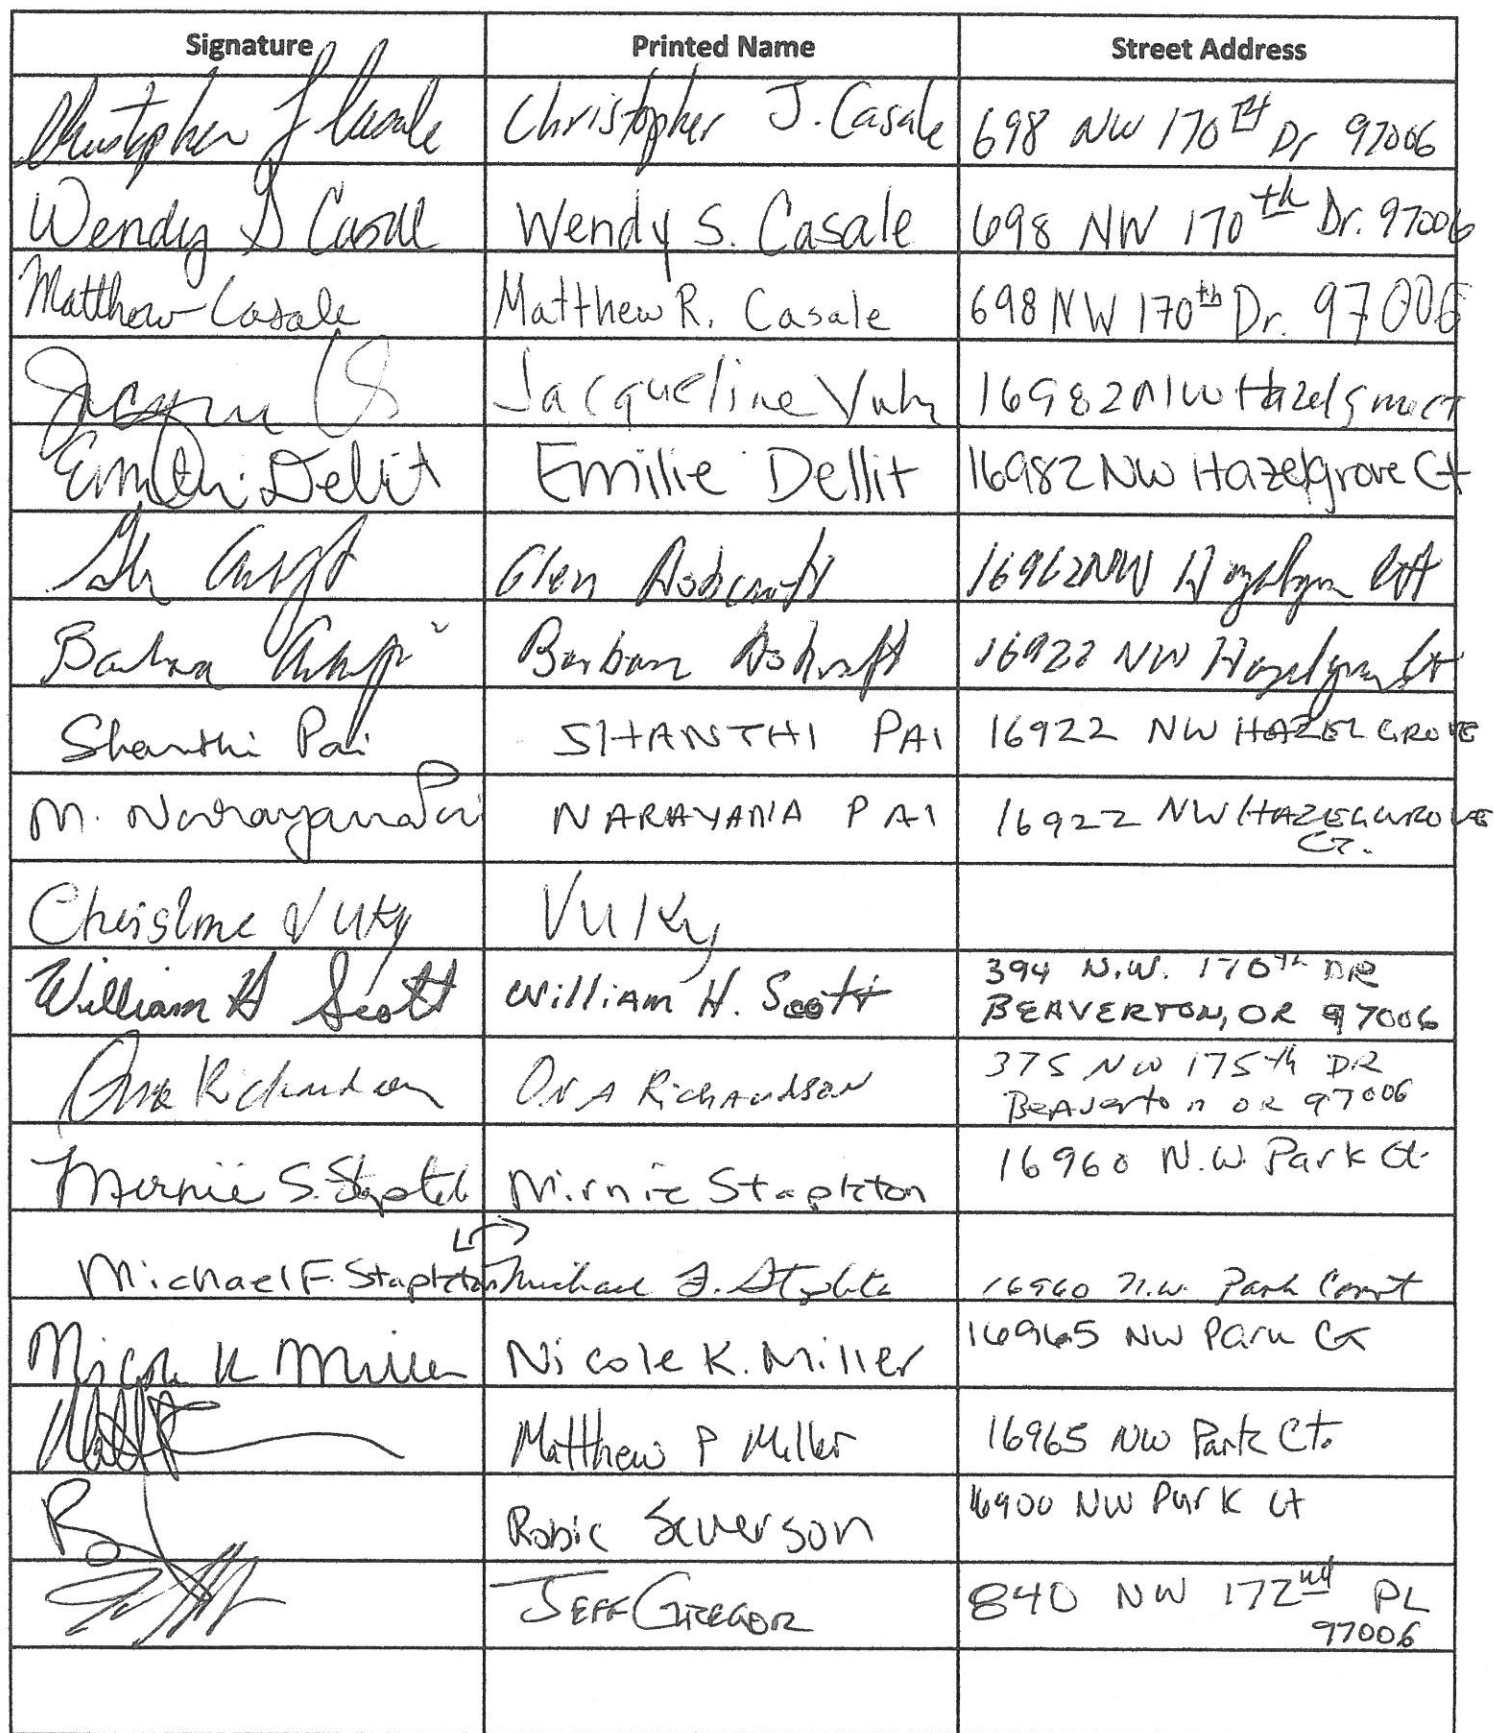 Signature Printed Name Street Address
Christopher J Casale Christopher J. Casale 698 NW 170th Dr 97006
Wendy S Casale Wendy S. Casale 698 NW 170th Dr. 97006
Matthew Casale Matthew R. Casale 698 NW 170th Dr. 97006
Jacqueline 16982 NW
Emilie Dellit Emilie Dellit 16982 NW Hazelgrove Ct
Glen Ashcraft NW
Barbara Barbara Ashcraft NW Hazelgrove Ct
Shanthi Pai SHANTHI PAI 16922 NW HAZELGROVE
M. Narayana Pai NARAYANA PAI 16922 NW HAZELGROVE
CT.
Christine Vuky Vuky
William H Scott William H. Scott 394 N.W. 170th DR
BEAVERTON, OR 97006
Ona Richardson ONA RichArdson 375 NW 175th DR
BeAverton OR 97006
Mirnie S. Stapleton Mirnie Stapleton 16960 N.W. Park Ct.
Michael F. Stapleton Michael F. Stapleton 16960 N.W. Park Court
Nicole K Miller Nicole K. Miller 16965 NW Park Ct
Matthew P Miller 16965 NW Park Ct.
Severson 16900 NW Park Ct
JEFF GREGOR 840 NW 172nd PL
97006